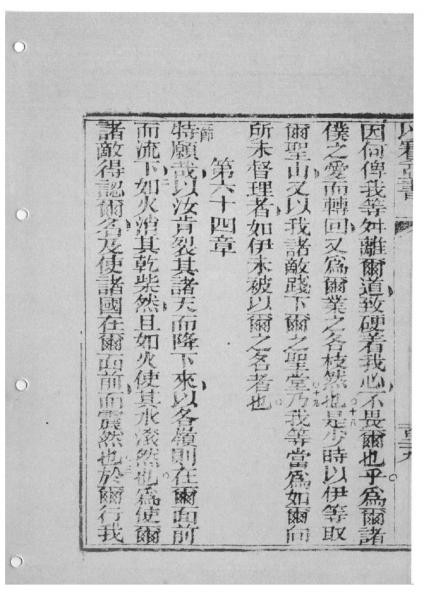 因何俾我等舛離爾道致硬著我心不畏爾也乎為爾諸
十八
僕之愛而轉回又為爾業之各枝然也是少時以伊等取
爾聖山又以我諸敵踐下爾之聖堂乃我等當為如爾向
十九
所未督理者如伊未被以爾之名者也
第六十四章
節
特願哉以汝肯裂其諸天而降下來以各嶺則在爾面前
二
而流下如火消其乾柴然且如火使其水滾然也為使爾
諸敵得認爾名及使諸國在爾面前而震然也於爾行我
三